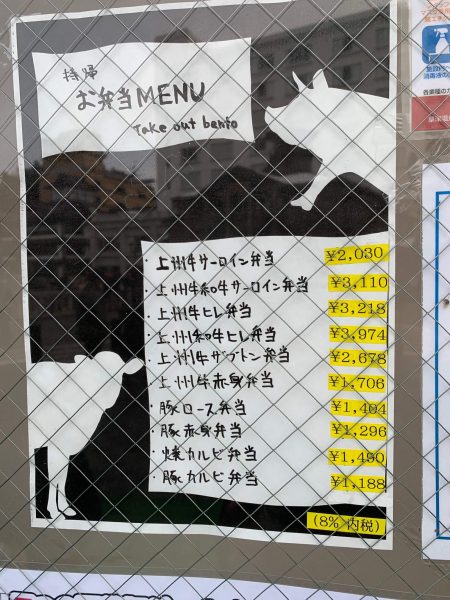 持帰
お弁当MENU
Take out bento
・上州牛サーロイン弁当 ¥2,030
・上州和牛サーロイン弁当 ¥3,110
・上州牛ヒレ弁当 ¥3,218
・上州和牛ヒレ弁当 ¥3,974
・上州牛ザブトン弁当 ¥2,678
・上州牛赤身弁当 ¥1,706
・豚ロース弁当 ¥1,404
・豚赤身弁当 ¥1,296
・焼カルビ弁当 ¥1,490
・豚カルビ弁当 ¥1,188
(8% 内税)